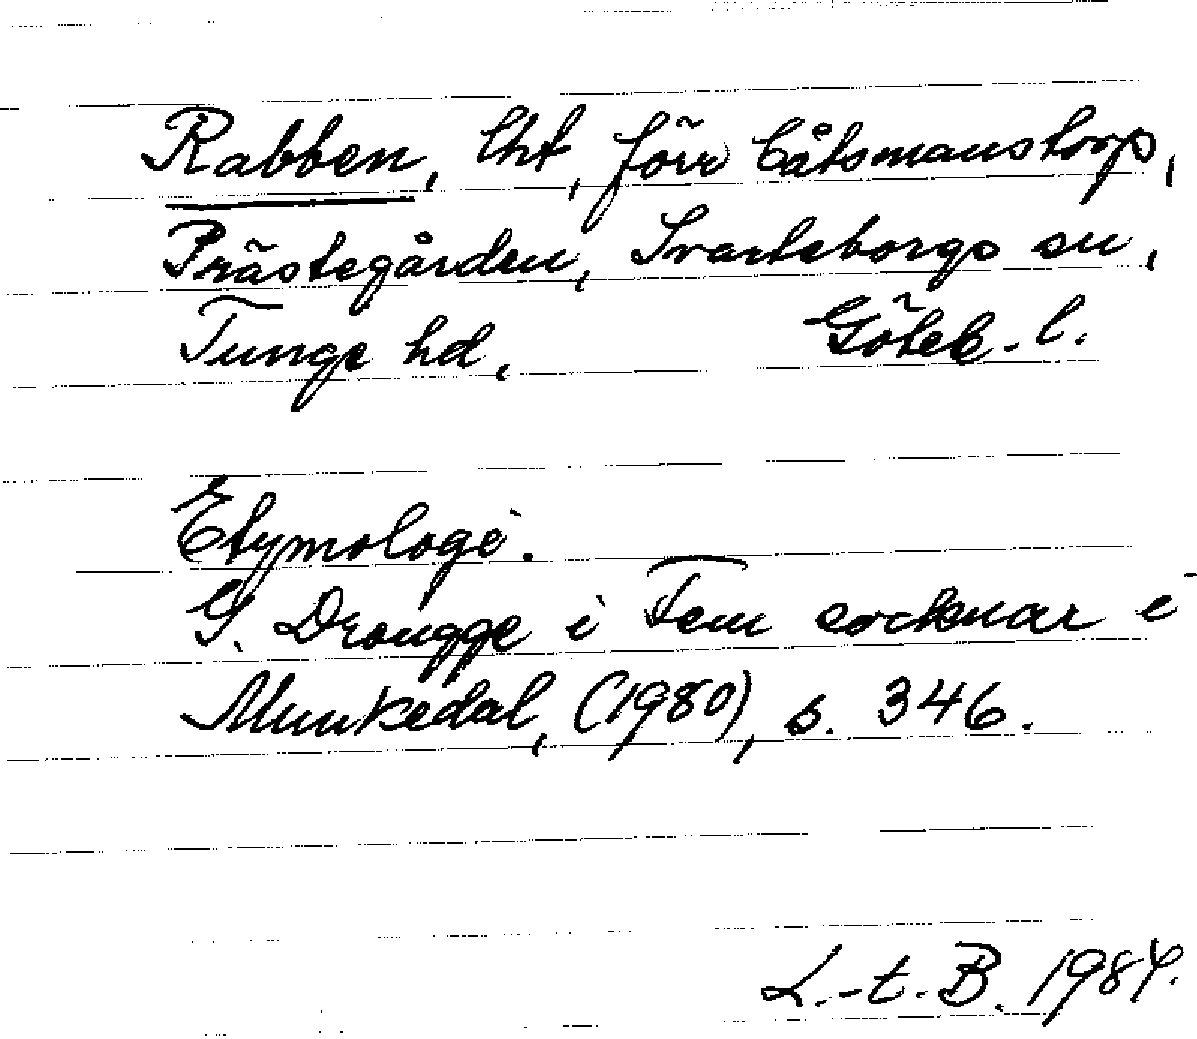 Rabben, lht, förr båtsmanstorp,
Prästegården, Svarteborgs sn,
Tunge hd, Göteb. l.
Etymologi.
G. Drougge i Fem socknar i
Munkedal, (1980), s. 346.
L.-t. B. 1984.